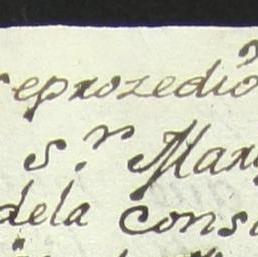 reprozedio
s.r Marq
dela cons